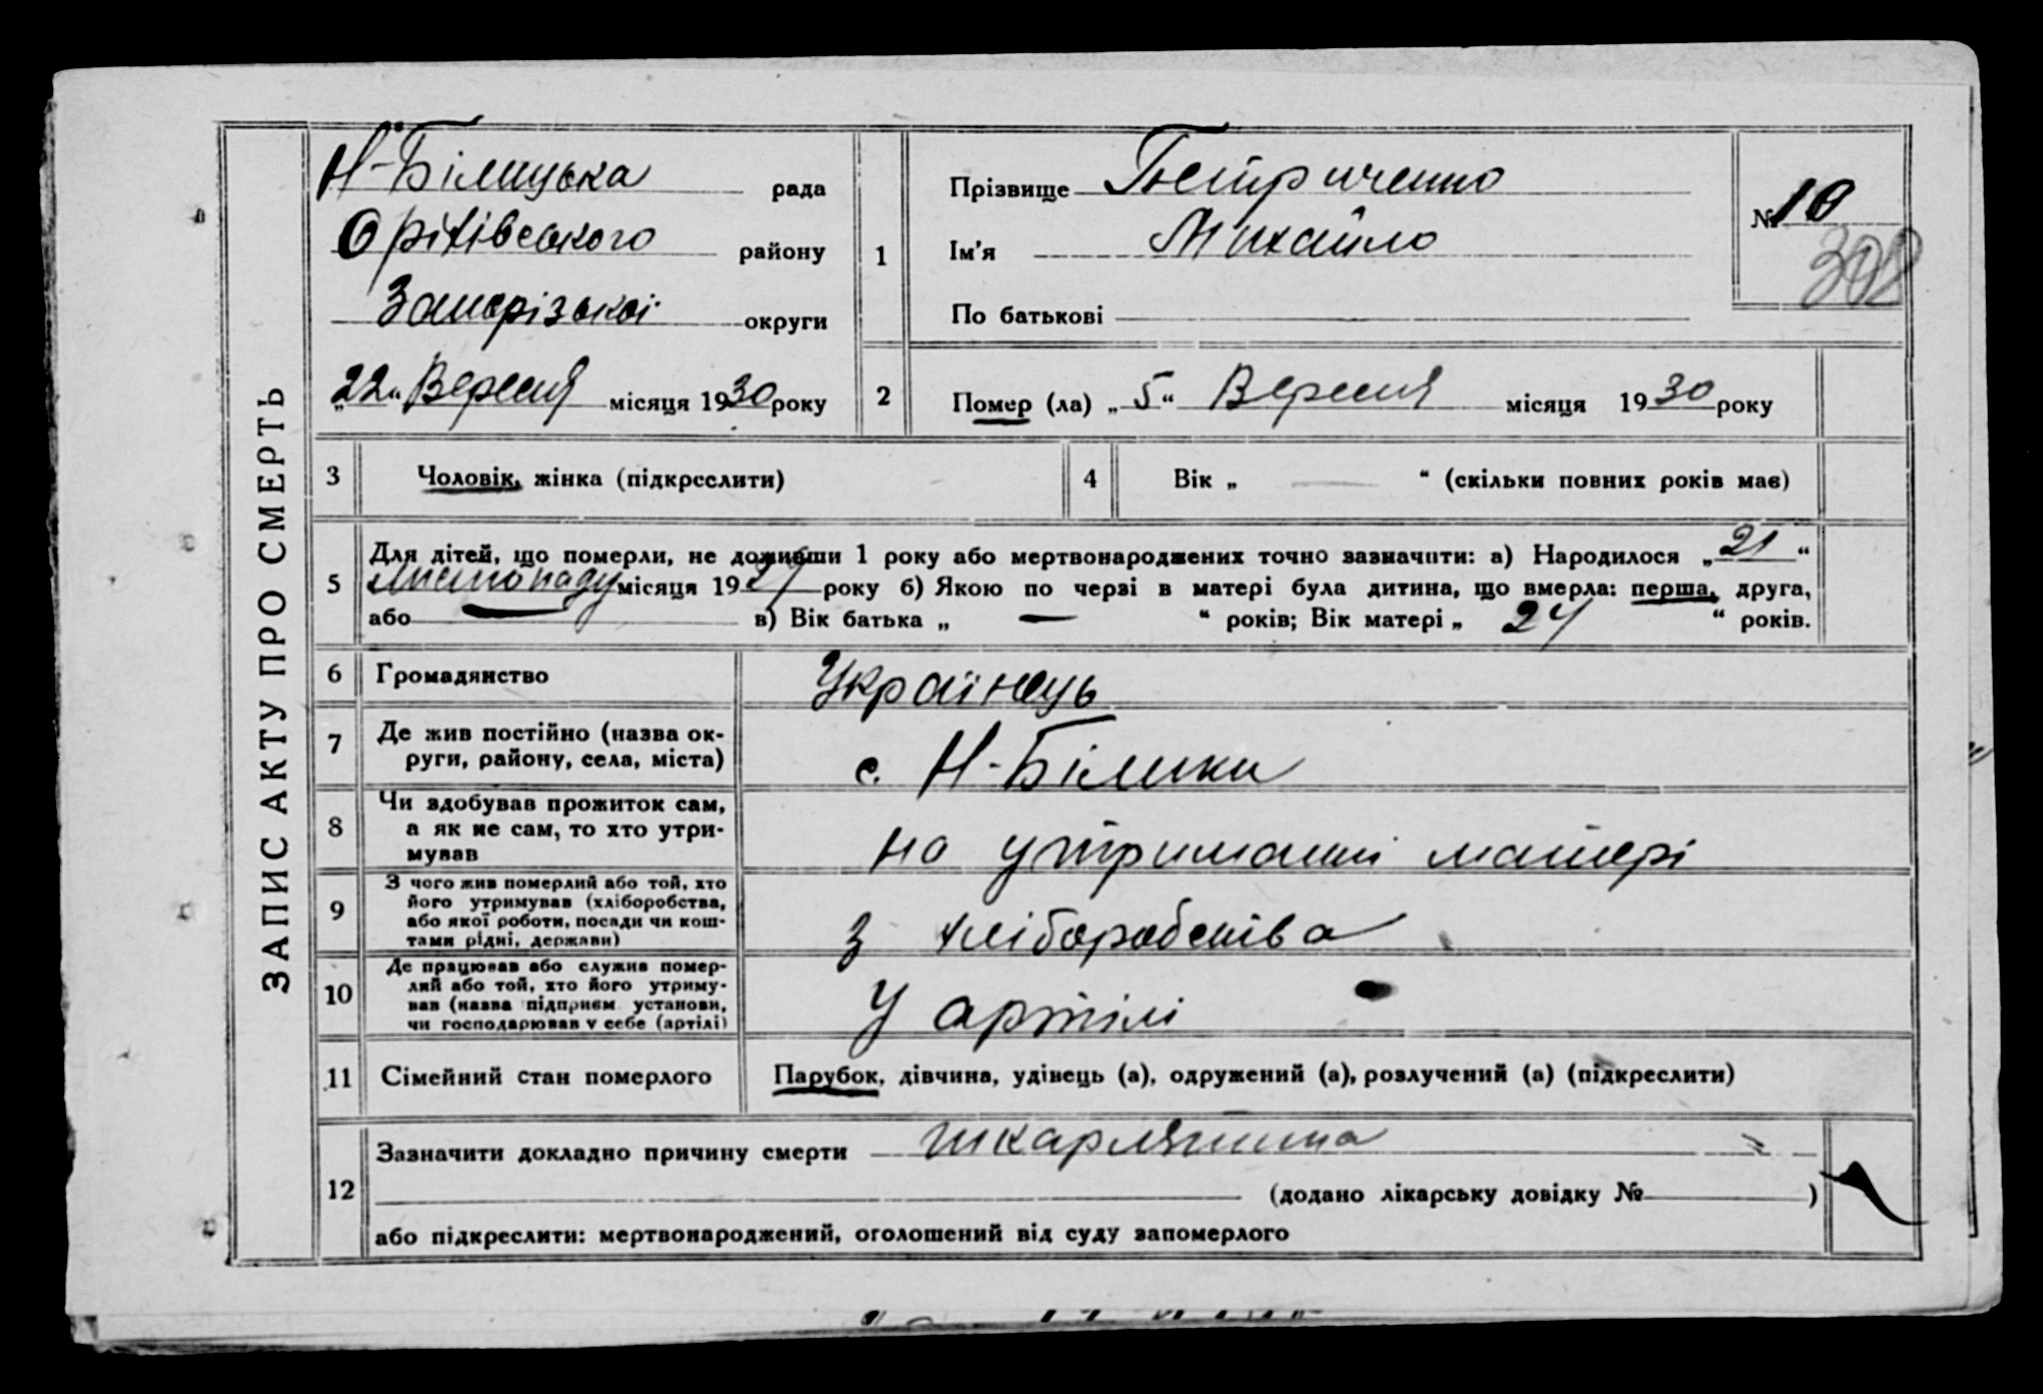 ЗАПИС АКТУ ПРО СМЕРТЬ
Н-Білицька рада
Оріхівського району
Запорізької округи
„22“ Вересня місяця 1930 року
1
Прізвище Петриченко
Ім'я Михайло
По батькові
№ 10
308
2
Помер (ла) „5“ Вересня місяця 1930 року
3 Чоловік, жінка (підкреслити)
4 Вік „ — “ (скільки повних років мав)
5 Для дітей, що померли, не доживши 1 року або мертвонароджених точно зазначити: а) Народилося „21“
Листопаду місяця 1929 року б) Якою по черзі в матері була дитина, що вмерла: перша, друга,
або — в) Вік батька „ — “ років; Вік матері „ 24 “ років.
6 Громадянство Українець
7 Де жив постійно (назва ок-
руги, району, села, міста) с. Н-Білики
8 Чи здобував прожиток сам,
а як не сам, то хто утри-
мував на утриманні матері
9 З чого жив померлий або той, хто
його утримував (хліборобства,
або якої роботи, посади чи кош-
тами рідні, держави) з хліборобства
10 Де працював або служив помер-
лий або той, хто його утриму-
вав (назва підприєм. установи,
чи господарював у себе (артілі) У артілі
11 Сімейний стан померлого Парубок, дівчина, удівець (а), одружений (а), розлучений (а) (підкреслити)
12 Зазначити докладно причину смерти шкарлятина
(додано лікарську довідку № )
або підкреслити: мертвонароджений, оголошений від суду запомерлого